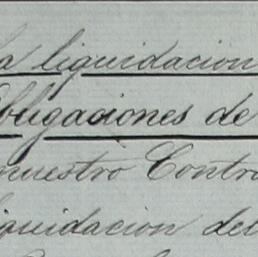 la liquidacion
Obligaciones de
nuestro Contra
liquidacion del